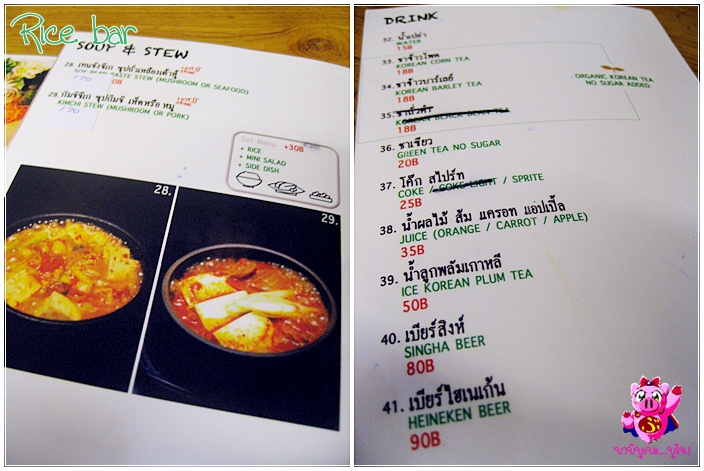 Rice bar
SOUP & STEW
28. เทนจังจิเก ซุปถั่วเหลืองเต้าหู้
SOY BEAN PASTE STEW (MUSHROOM OR SEAFOOD)
170
29. กิมจิจิเก ซุปกิมจิ เห็ดหรือ หมู
KIMCHI STEW (MUSHROOM OR PORK)
170
Set Menu +30B
+ RICE
+ MINI SALAD
+ SIDE DISH
28.
29.
DRINK
32. น้ำเปล่า
WATER
15B
33. ชาข้าวโพด
KOREAN CORN TEA
18B
34. ชาข้าวบาร์เลย์
KOREAN BARLEY TEA
18B
ORGANIC KOREAN TEA
NO SUGAR ADDED
35. ชาถั่วดำ
KOREAN BLACK BEAN TEA
18B
36. ชาเขียว
GREEN TEA NO SUGAR
20B
37. โค๊ก สไปร์ท
COKE / COKE LIGHT / SPRITE
25B
38. น้ำผลไม้ ส้ม แครอท แอ๊ปเปิ้ล
JUICE (ORANGE / CARROT / APPLE)
35B
39. น้ำลูกพลัมเกาหลี
ICE KOREAN PLUM TEA
50B
40. เบียร์สิงห์
SINGHA BEER
80B
41. เบียร์ไฮเนเก้น
HEINEKEN BEER
90B